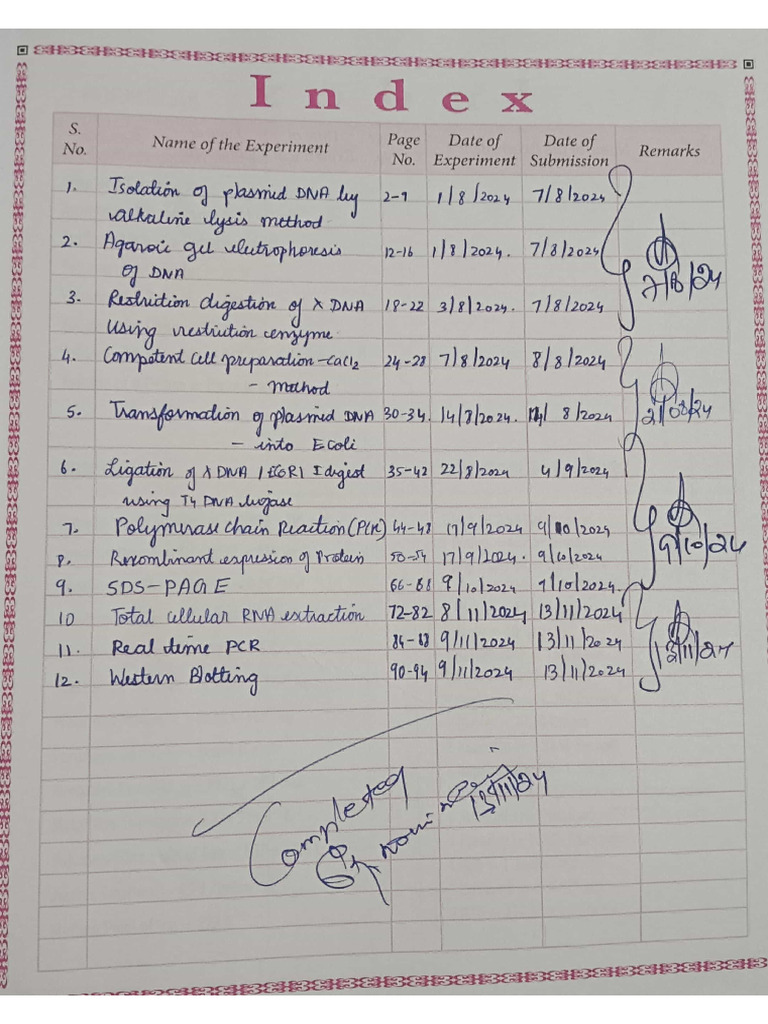 Index
S. No. Name of the Experiment Page No. Date of Experiment Date of Submission Remarks
1. Isolation of plasmid DNA by 2-9 1/8/2024 7/8/2024
alkaline lysis method
2. Agarose gel electrophoresis 12-16 1/8/2024. 7/8/2024
of DNA
7/8/24
3. Restriction digestion of λ DNA 18-22 3/8/2024. 7/8/2024
using restriction enzyme.
4. Competent cell preparation-CaCl2 24-28 7/8/2024 8/8/2024
- Method
5. Transformation of plasmid DNA 30-34. 14/8/2024. 14/8/2024
21/08/24
- into Ecoli
6. Ligation of λ DNA / ECORI I digest 35-42 22/8/2024 4/9/2024
using T4 DNA ligase
7. Polymerase chain Reaction (PCR) 44-48 17/9/2024 9/10/2024
9/10/24
8. Recombinant expression of Protein 50-54 17/9/2024. 9/10/2024
9. SDS-PAGE 66-68 9/10/2024 9/10/2024
10 Total cellular RNA extraction 72-82 8/11/2024 13/11/2024
11. Real time PCR 84-88 9/11/2024 13/11/2024
13/11/24
12. Western Blotting 90-94 9/11/2024 13/11/2024
Completed
13/11/24